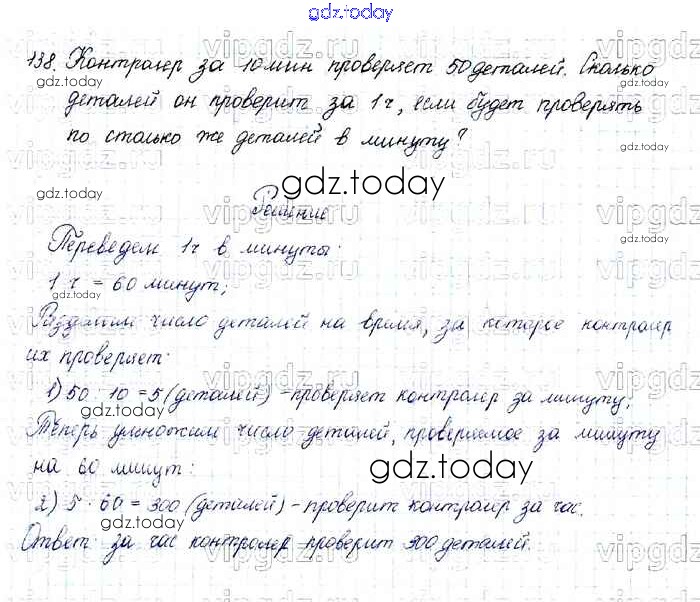 gdz.today
138. Контролер за 10 мин проверяет 50 деталей. Сколько
gdz.today
деталей он проверит за 1 ч, если будет проверять
gdz.today
по столько же деталей в минуту?
gdz.today
gdz.today
gdz.today
Решение
Переведем 1 ч в минуты:
1 ч = 60 минут;
gdz.today
Разделим число деталей на время, за которое контролер
их проверяет:
1) 50 : 10 = 5 (деталей) - проверяет контролер за минуту.
gdz.today
Теперь умножим число деталей, проверяемое за минуту
на 60 минут:
gdz.today
2) 5 · 60 = 300 (деталей) - проверит контролер за час.
gdz.today
Ответ: за час контролер проверит 300 деталей.